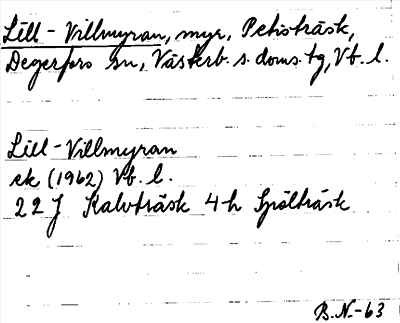 Lill-Villmyran, myr, Petisträsk,
Degerfors sn, Västerb. s. doms. tg, Vb. l.
Lill-Villmyran
ek (1962) Vb. l.
22 J Kalvträsk 4-h Spölträsk
B.N.-63